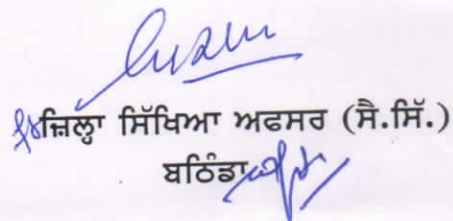 ਜ਼ਿਲ੍ਹਾ ਸਿੱਖਿਆ ਅਫਸਰ (ਸੈ.ਸਿੱ.)
ਬਠਿੰਡਾ